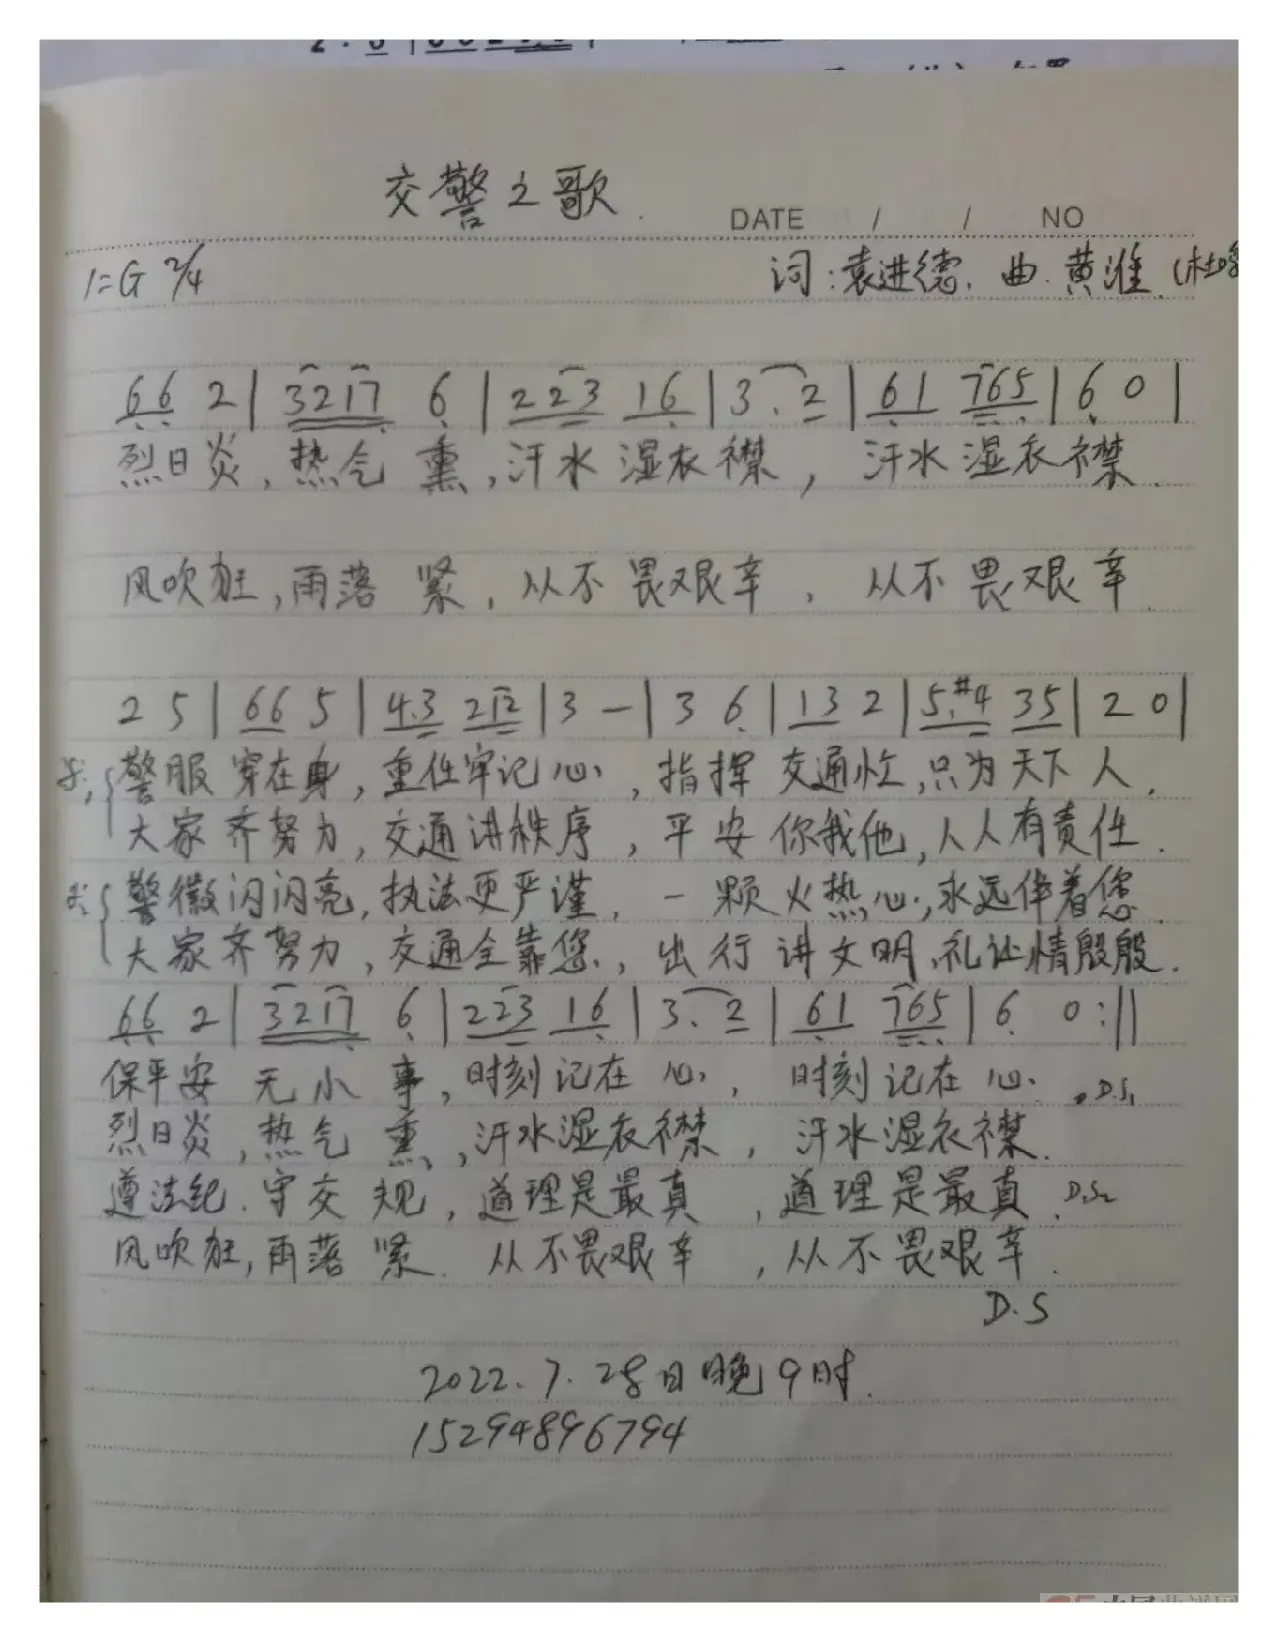 交警之歌
DATE / / NO
1=G 2/4
词:袁进德. 曲:黄淮
66 2 | 3217 6 | 223 16 | 3. 2 | 61 765 | 6 0 |
烈日炎,热气熏,汗水湿衣襟,汗水湿衣襟.
风吹狂,雨落紧,从不畏艰辛,从不畏艰辛.
2 5 | 66 5 | 4.3 212 | 3 — | 3 6 | 13 2 | 5.#4 35 | 2 0 |
警服穿在身,重任牢记心,指挥交通忙,只为天下人.
大家齐努力,交通讲秩序,平安你我他,人人有责任.
警徽闪闪亮,执法更严谨,一颗火热心,永远伴着您.
大家齐努力,交通全靠您,出行讲文明,礼让情殷殷.
66 2 | 3217 6 | 223 16 | 3. 2 | 61 765 | 6 0 :||
保平安无小事,时刻记在心,时刻记在心. D.S1
烈日炎,热气熏,汗水湿衣襟,汗水湿衣襟.
遵法纪.守交规,道理是最真,道理是最真. D.S2
风吹狂,雨落紧.从不畏艰辛,从不畏艰辛.
D.S
2022.7.28日晚9时.
15294896794